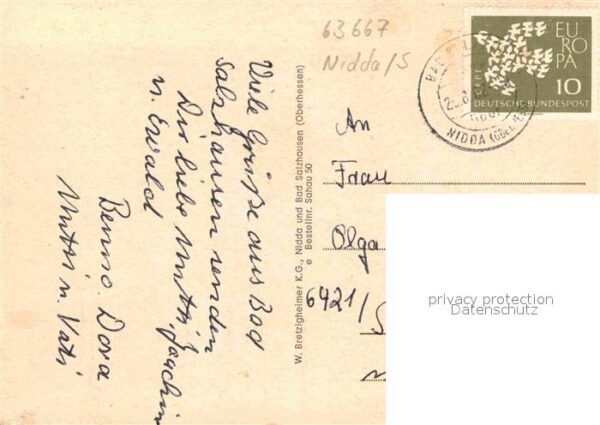 63667
Nidda/S
EUROPA
10
DEUTSCHE BUNDESPOST
NIDDA
Viele Grüße aus Bad
Salzhausen senden
Dir liebe Mutti, Joachim
u. Ewald
Benno. Dora
Mutti u. Vati
W. Bretzigheimer K.G., Nidda und Bad Salzhausen (Oberhessen)
e Bestellnr. Sahau 50
An
Frau
Olga
6421/
privacy protection
Datenschutz